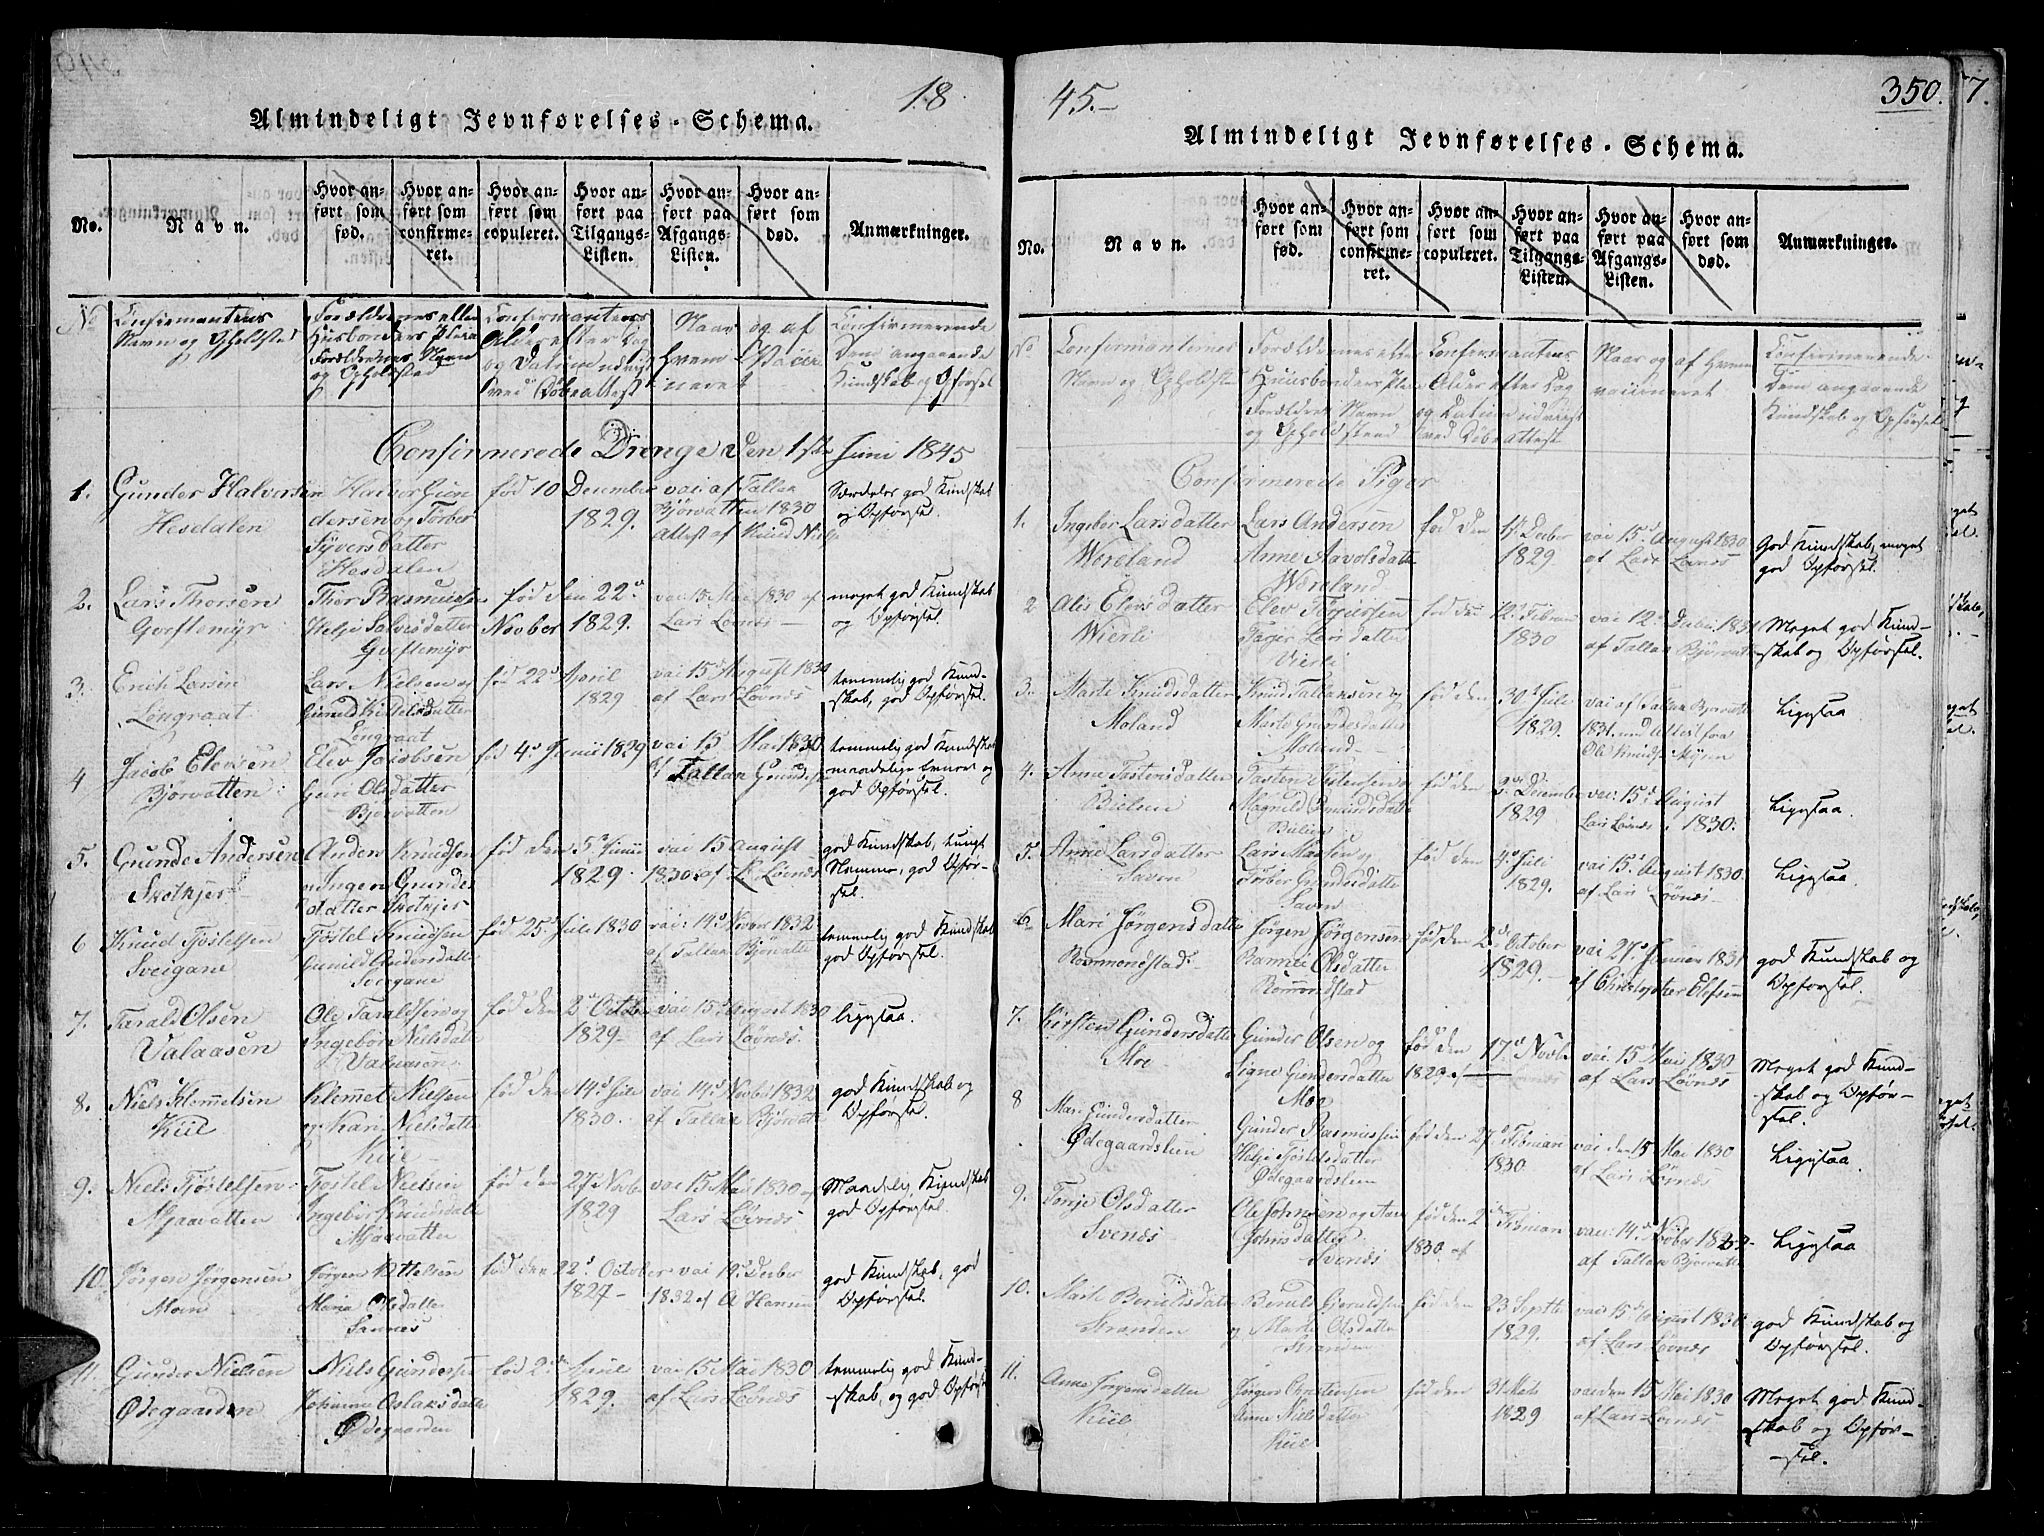 18
Almindeligt Jevnførelses-Schema.
No.
Navn.
Hvor anført som fød.
Hvor anført som confirmeret.
Hvor anført som copuleret.
Hvor anført paa Tilgangs-Listen.
Hvor anført paa Afgangs-Listen.
Hvor anført som død.
Anmærkninger.
No
Confirmantens
Navn og Opholdsted
Forældrenes eller
Husbonders Pleie
Forældrenes Navn
og Opholdsted
Confirmantens
Alder efter Dag
og Datum udviist
ved Døbeattest
Naar og af
hvem Vaccineret
Confirmerende
Dom angaaende
Kundskab og Opførsel
Confirmerede Drenge den 1ste Juni 1845
1.
Gunder Halvorsen
Hesdalen
Halvor Gundersen og Torber
Syversdatter
Hesdalen
fød 10 December
1829.
vac af Tallak
Bjorvatten 1830
Attest af Knud Niels
Særdeles god Kundskab
og Opførsel.
2.
Lars Thorsen
Gveftemyr
Thor Rasmussen
Helje Salvesdatter
Gveftemyr
fød den 22d
Novber 1829.
vac 15 Mai 1830 af
Lars Lovnes
meget god Kundskab
og Opførsel.
3.
Erich Larsen
Longraat
Lars Nielsen og
Gunild Kittelsdatter
Longraat
fød 22d April
1829
vac 15d August 1830
af Lars Lövnes
temmelig god Kundskab, god Opførsel.
4
Jacob Elevsen
Bjorvatten
Elev Jacobsen
Guri Olsdatter
Bjorvatten
fød 4d Junii 1829
vac 15 Mai 1830
af Tallak Gundersen
temmelig god Kundskab
maadelige Evner og
god Opførsel.
5.
Gunde Andersen
Skotkjer
Anders Knudsen
og Ingen Gundersdatter Skotkjer
fød den 5d Junii
1829.
vac 15 August
1830. af L. Lövnes
god Kundskab, tungt
Nemme, god Opførsel.
6
Knud Tjøstelsen
Sveigane
Tjøstel Knudsen
Gunild Andersdatter
Sveigane
fød 25d Juli 1830
vac: 14d Novbr 1832
af Tallak Bjorvatten
temmelig god Kundskab
god Opførsel.
7.
Tarald Olsen
Valaasen
Ole Taraldsen og
Ingebor Nielsdatter
Valaasen
fød den 2d October
1829
vac 15d August 1830
af Lars Lövnes.
ligesaa.
8.
Niels Klemetsen
Kiil
Klemmet Nielsen
og Kari Nielsdatter
Kiil
fød den 14d Juli
1830.
vac 14d Novbr 1832
af Tallak Bjorvatten
god Kundskab og
Opførsel.
9.
Niels Tjøstelsen
Mjaavatten
Tjøstel Nielsen
Ingebor Knudsdatter
Mjaavatten
fød den 27 Novbr
1829
vac 15 Mai 1830 af
Lars Lövnes
Maadelig Kundskab
god Opførsel.
10.
Jørgen Jørgensen
Moen
Jørgen Kittelsen
Maria Olsdatter
fød den 22d October
1827
vac 19d Decber
1832 af A Hansen
god Kundskab, god
Opførsel.
11.
Gunder Nielsen
Ødegaarden
Niels Gundersen
Johanna Oslaksdatter
Ødegaarden
fød 2den April
1829.
vac 15 Mai 1830
af Lars Lövnes
temmelig god Kundskab, og god Opførsel
45.
350.
7.
Almindeligt Jevnførelses-Schema.
No.
Navn.
Hvor anført som fød.
Hvor anført som confirmeret.
Hvor anført som copuleret.
Hvor anført paa Tilgangs-Listen.
Hvor anført paa Afgangs-Listen.
Hvor anført som død.
Anmærkninger.
No
Confirmanternes
Navn og Opholdsted
Forældrenes eller
Huusbonders Pleie
Forældres Navn
og Opholdsted
Confirmantens
Alder efter Dag
og Datum udviist
ved Døbeattest
Naar og af Hvem
vacineret
Confirmerende
Dom angaaende
Kundskab og Opførsel
Confirmerede Piger
1.
Ingebor Larsdatter
Woreland
Lars Andersen
Anne Aavolsdatter
Woreland
fød den 17 Decber
1829
vac 15d August 1830
af Lars Lövnes
God Kundskab, meget
god Opførsel.
2
Alis Elevsdatter
Wierli
Elev Terjersen
Tarjer Larsdatter
Vierli
fød den 12d Februar
1830
vac 12d Decbr 1831
af Tallak Bjorvatten
Meget god Kundskab og Opførsel.
3.
Marte Knudsdatter
Moland
Knud Tallaksen og
Marte Gundersdatter
Moland
fød den 30d Juli
1829.
vac af Tallak Bjorvatten
1831. med Attest fra
Ole Knudsen
Ligesaa
4.
Anne Tastensdatter
Bielien
Tasten og
Magnild
fød den 2d December
1829
vac: 15d August
Lars Lövnes 1830.
Ligesaa.
5.
Anne Larsdatter
Saven
Lars Madsen og
Torber Gundersdatter
Saven
fød den 4d Juli
1829.
vac 15d August 1830.
af Lars Lövnes
Ligesaa.
6.
Mari Jørgensdatter
Rommenestad
Jørgen Jørgensen
Olsdatter
fød den 2d October
1829.
vac 27d Januar 1831
af Christopher Elefsen
god Kundskab og
Opførsel.
7.
Kirsten Gundersdatter
Moe
Gunder Olsen og
Signe Gundersdatter
Moe
fød den 17d Novbr
1829
vac 15 Mai 1830
af Lars Lövnes
Meget god Kundskab og Opførsel.
8
Mari Gundersdatter
Ødegaardslien
Gunder Rasmussen
Helje Tjøstelsdatter
Ødegaardslien
fød den 27d Februar
1830.
vac den 15 Mai 1830
af Lars Lövnes
Ligesaa.
9.
Tonje Olsdatter
Svenes
Ole Johnsen og
Johnsdatter
Svenes
fød den 2den Februar
1830. af
vac 14d Novbr 1832
af Tallak Bjorvatten
Ligesaa
10.
Marte Berulsdatter
Stranden
Berul Gjeruldsen
og Marte Olsdatter
Stranden
fød den 23 Septbr
1829.
vac 15d August 1830
af Lars Lövnes
god Kundskab og
Opførsel.
11.
Anne Jørgensdatter
Kiil
Jørgen Christensen
Anne Nielsdatter
Kiil
fød den 31 Marts
1829
vac den 15 Mai 1830
af Lars Lövnes
Meget god Kundskab og Opførsel.